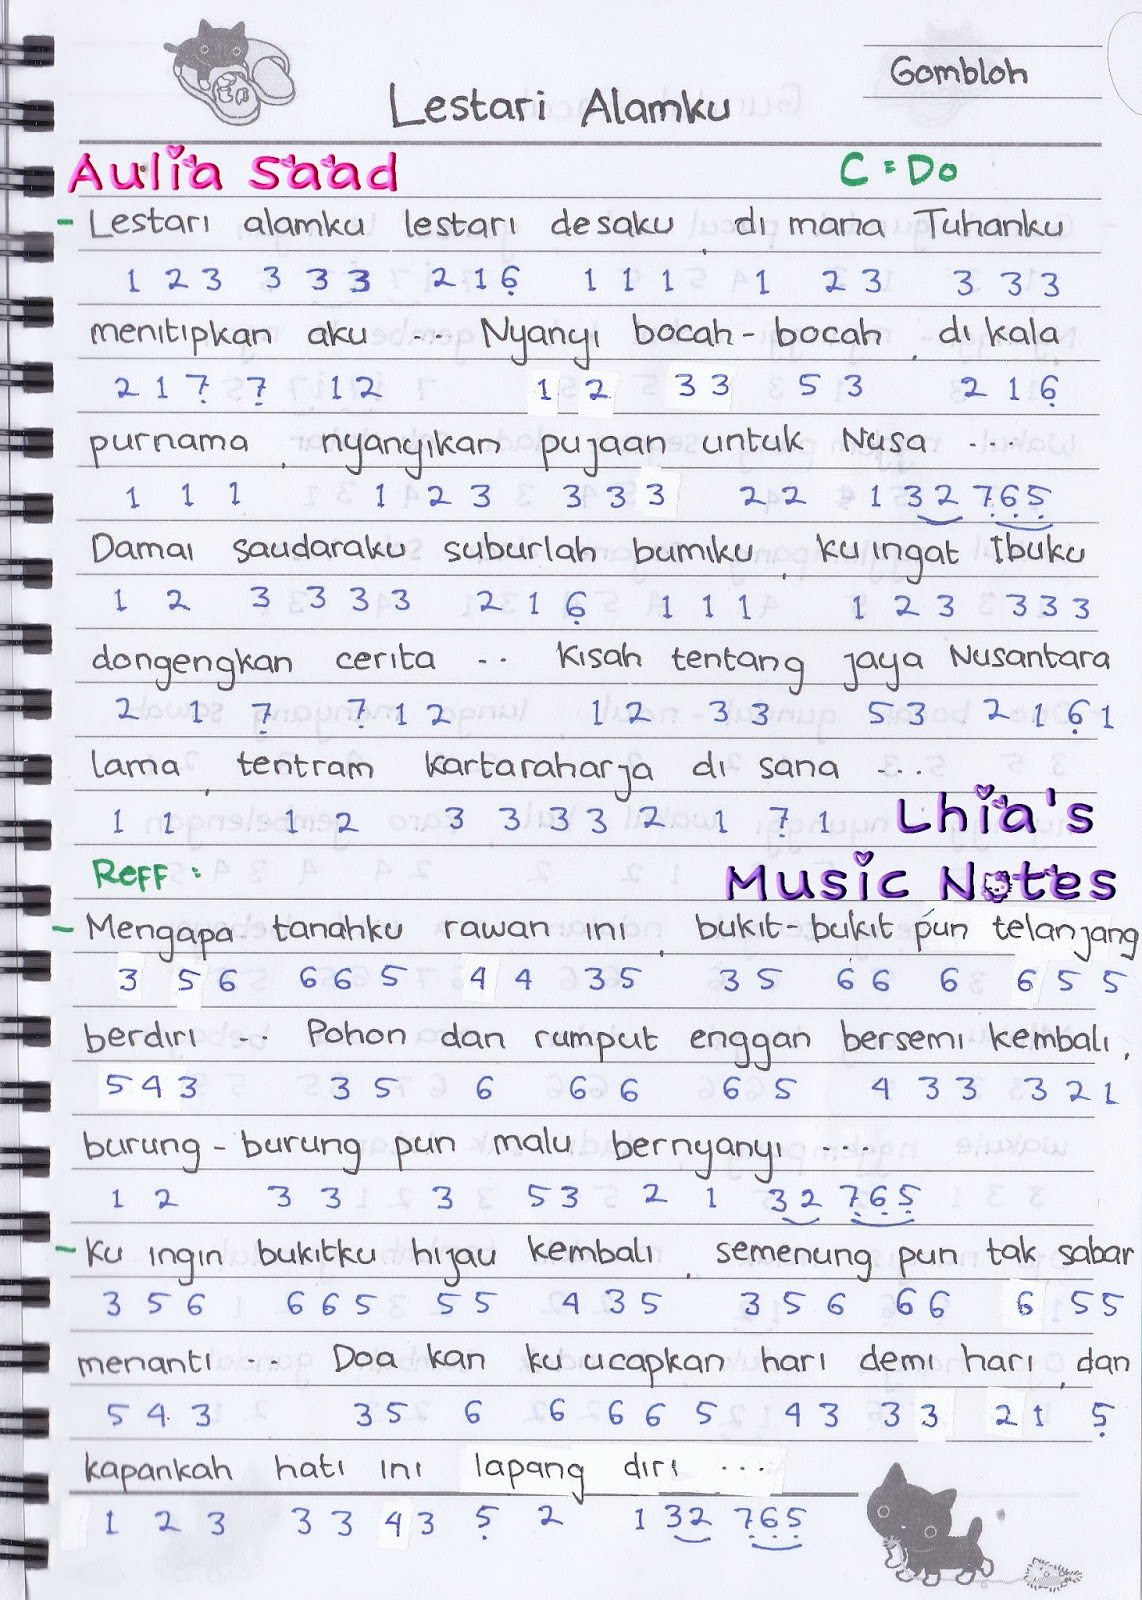 Gombloh
Lestari Alamku
Aulia Saad
C = Do
- Lestari alamku lestari desaku, di mana Tuhanku
1 2 3 3 3 3 2 1 6̣ 1 1 1 1 2 3 3 3 3
menitipkan aku ... Nyanyi bocah-bocah, di kala
2 1 7̣ 7̣ 1 2 1 2 3 3 5 3 2 1 6̣
purnama, nyanyikan pujaan untuk Nusa ...
1 1 1 1 2 3 3 3 3 2 2 1 3 2 7̣ 6̣ 5̣
Damai saudaraku suburlah bumiku, ku ingat Ibuku
1 2 3 3 3 3 2 1 6̣ 1 1 1 1 2 3 3 3 3
dongengkan cerita .. Kisah tentang jaya Nusantara
2 1 7̣ 7̣ 1 2 1 2 3 3 5 3 2 1 6̣ 1
lama, tentram kartaraharja di sana ...
1 1 1 2 3 3 3 3 2 1 7̣ 1
Lhia's
Music Notes
Reff :
- Mengapa tanahku rawan ini, bukit-bukit pun telanjang
3 5 6 6 6 5 4 4 3 5 3 5 6 6 6 6 5 5
berdiri ... Pohon dan rumput enggan bersemi kembali,
5 4 3 3 5 6 6 6 6 5 4 3 3 3 2 1
burung-burung pun malu bernyanyi ....
1 2 3 3 3 5 3 2 1 3 2 7̣ 6̣ 5̣
- Ku ingin bukitku hijau kembali, semenung pun tak sabar
3 5 6 6 6 5 5 5 4 3 5 3 5 6 6 6 6 5 5
menanti ... Doa kan ku ucapkan hari demi hari, dan
5 4 3 3 5 6 6 6 6 5 4 3 3 3 2 1 5̣
kapankah hati ini lapang diri ...
1 2 3 3 3 4 3 5̣ 2 1 3 2 7̣ 6̣ 5̣